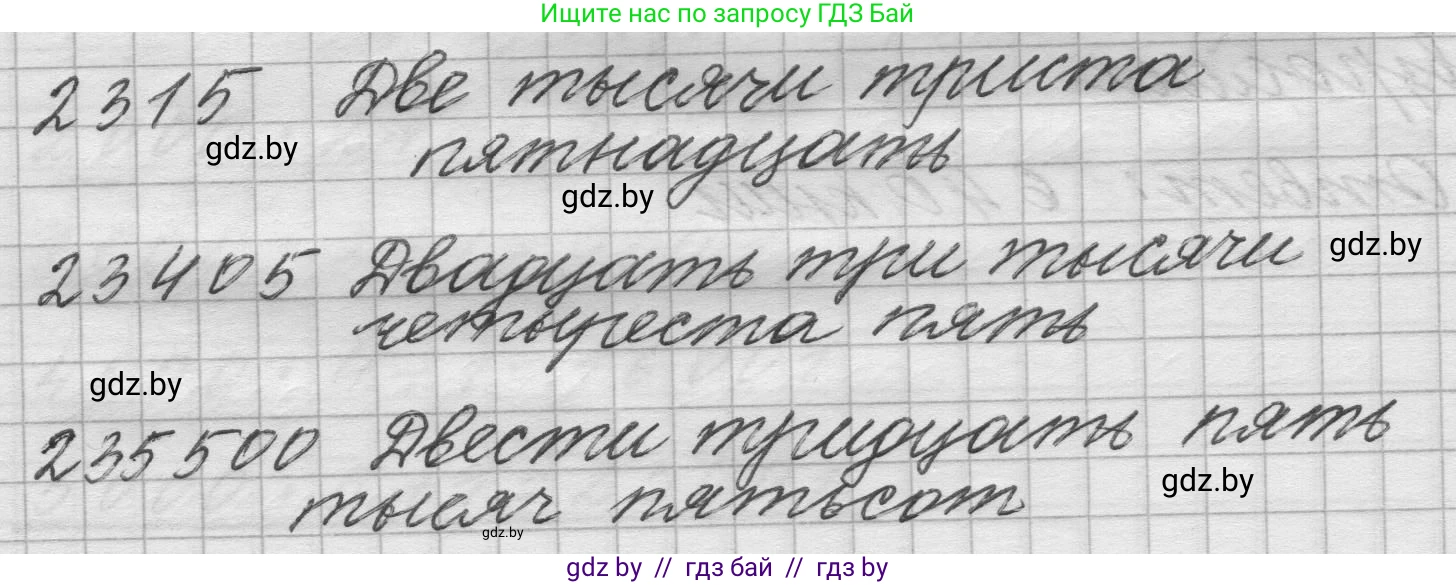 Ищите нас по запросу ГДЗ Бай
2315 Две тысячи триста
gdz.by
пятнадцать
gdz.by
23405 Двадцать три тысячи
gdz.by
четыреста пять
gdz.by
235500 Двести тридцать пять
gdz.by
тысяч пятьсот
gdz.by
gdz by // гдз бай // гдз by